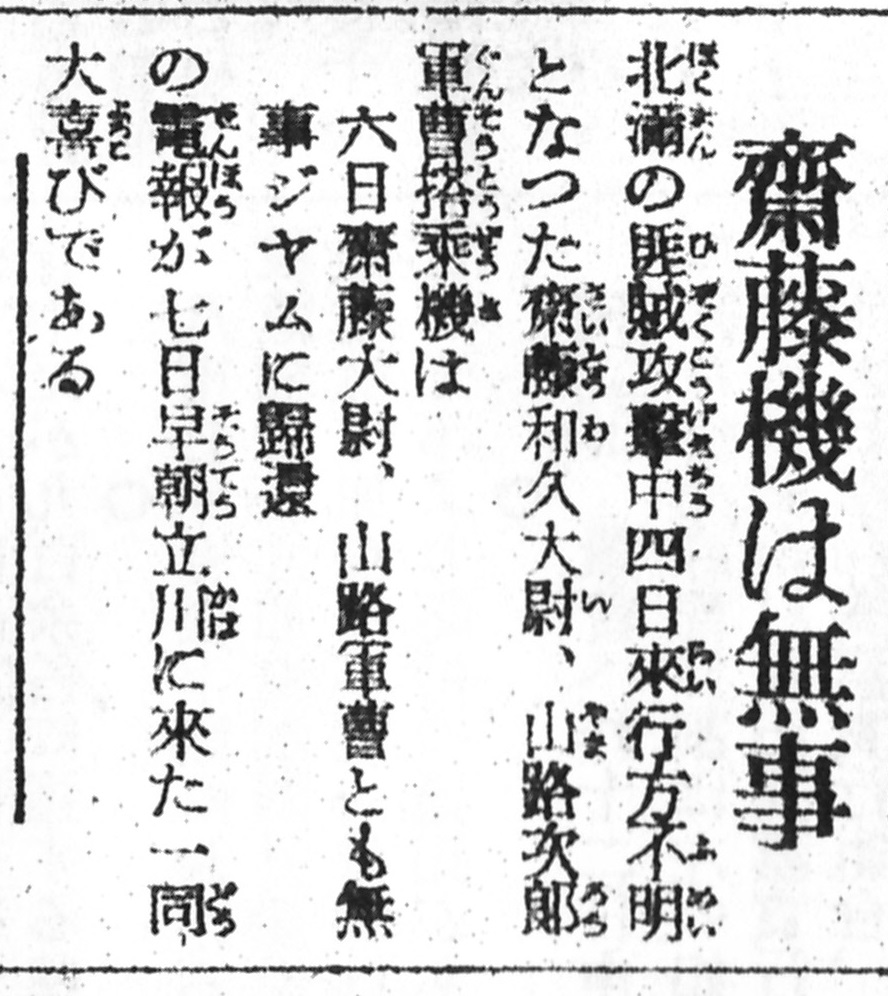 齋藤機は無事
北滿の匪賊攻擊中四日來行方不明
となつた齋藤和久大尉、山路次郎
軍曹搭乘機は
六日齋藤大尉、山路軍曹とも無
事ジヤムに歸還
の電報が七日早朝立川に來た一同
大喜びである